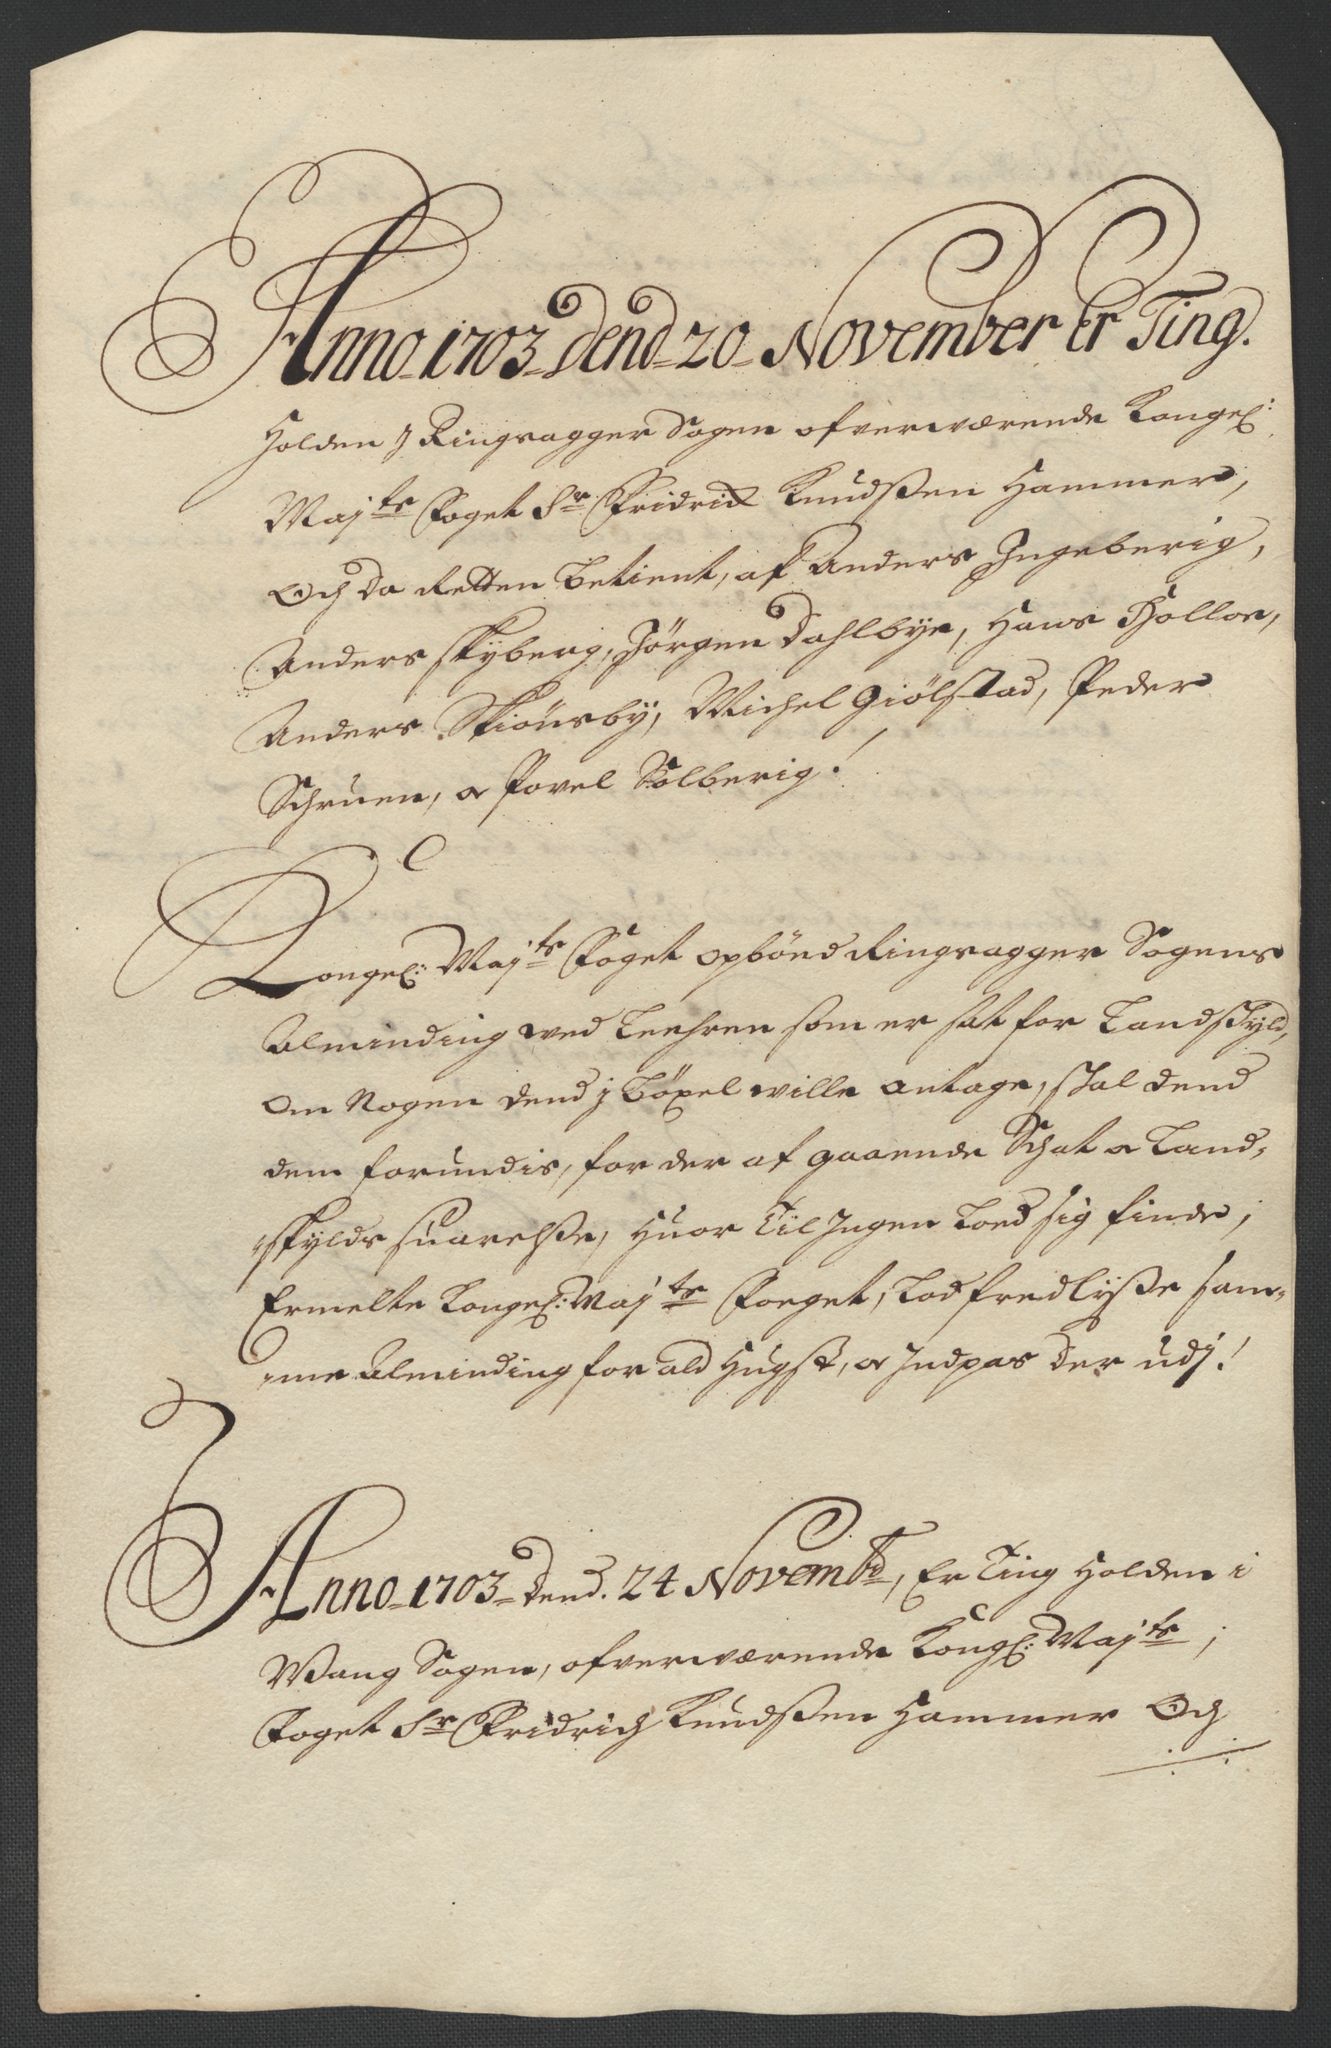 Anno 1703 Dend 20 November Er Ting.
Holden j Ringsagger Sogen ofverværende Kongel:
Maj:ts Foget Sr Fridrich Knudßen Hammer,
Och da Retten betient, af Anders Ingeberig,
Anders Skyberg, Jörgen Dahlbye, Hans Tholloe,
Anders Skiönsby, Michel Giölstad, Peder
Schruen, og Povel Solberig!
Kongel: Maj:ts Foget opbönd Ringsagger Sogens
Alminding ved Leehren som er sat for Landskyld,
Om Nogen dend j böxel wille antage, skal dend
dem forundis, for der af gaaende Schat og Land-
skylds suarelße, Huor til Ingen loed sig finde,
Ermelte Kongel: Maj:ts Foeget, lod fredlyße sam-
me Alminding for ald Hugst, og Indpas der udj!
Anno 1703 Dend. 24 Novembr, Er Ting Holden i
Wang Sogen, ofverværende Kongl: Maj:ts,
Foget Sr Fridrich Knudßen Hammer Och